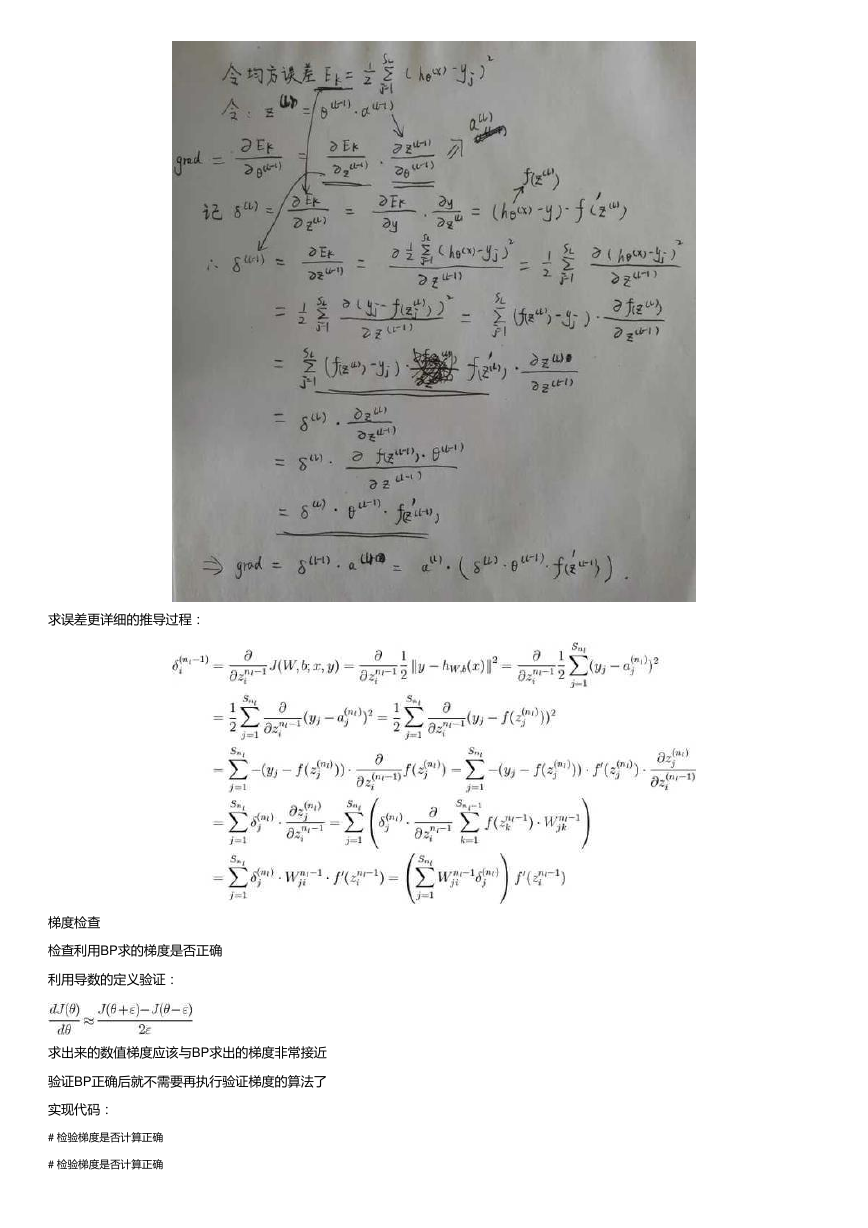 令均方误差 E_k = 1/2 Σ_{j=1}^{S_L} (h_θ(x) - y_j)^2
令: z^(L) = θ^(L-1) · a^(L-1)
grad = ∂E_k/∂θ^(L-1) = ∂E_k/∂z^(L-1) · ∂z^(L-1)/∂θ^(L-1) a^(L)
记 δ^(L) = ∂E_k/∂z^(L) = ∂E_k/∂y · ∂y/∂z^(L) = (h_θ(x) - y) · f'(z^(L)) f(z^(L))
∴ δ^(L-1) = ∂E_k/∂z^(L-1) = ∂ 1/2 Σ_{j=1}^{S_L} (h_θ(x) - y_j)^2 / ∂z^(L-1) = 1/2 Σ_{j=1}^{S_L} ∂(h_θ(x) - y_j)^2 / ∂z^(L-1)
= 1/2 Σ_{j=1}^{S_L} ∂(y_j - f(z_j^(L)))^2 / ∂z^(L-1) = Σ_{j=1}^{S_L} (f(z^(L)) - y_j) · ∂f(z^(L)) / ∂z^(L-1)
= Σ_{j=1}^{S_L} (f(z^(L)) - y_j) · f'(z^(L)) · ∂z^(L) / ∂z^(L-1)
= δ^(L) · ∂z^(L) / ∂z^(L-1)
= δ^(L) · ∂ f(z^(L-1)) · θ^(L-1) / ∂z^(L-1)
= δ^(L) · θ^(L-1) · f'(z^(L-1))
⇒ grad = δ^(L-1) · a^(L) = a^(L) · (δ^(L) · θ^(L-1) · f'(z^(L-1))).
求误差更详细的推导过程：
δ_i^(n_l-1) = ∂/∂z_i^{n_l-1} J(W, b; x, y) = ∂/∂z_i^{n_l-1} 1/2 ‖y - h_{W,b}(x)‖^2 = ∂/∂z_i^{n_l-1} 1/2 Σ_{j=1}^{S_{n_l}} (y_j - a_j^(n_l))^2
= 1/2 Σ_{j=1}^{S_{n_l}} ∂/∂z_i^{n_l-1} (y_j - a_j^(n_l))^2 = 1/2 Σ_{j=1}^{S_{n_l}} ∂/∂z_i^{n_l-1} (y_j - f(z_j^(n_l)))^2
= Σ_{j=1}^{S_{n_l}} -(y_j - f(z_j^(n_l))) · ∂/∂z_i^(n_l-1) f(z_j^(n_l)) = Σ_{j=1}^{S_{n_l}} -(y_j - f(z_j^(n_l))) · f'(z_j^(n_l)) · ∂z_j^(n_l)/∂z_i^(n_l-1)
= Σ_{j=1}^{S_{n_l}} δ_j^(n_l) · ∂z_j^(n_l)/∂z_i^{n_l-1} = Σ_{j=1}^{S_{n_l}} (δ_j^(n_l) · ∂/∂z_i^{n_l-1} Σ_{k=1}^{S_{n_l-1}} f(z_k^{n_l-1}) · W_{jk}^{n_l-1})
= Σ_{j=1}^{S_{n_l}} δ_j^(n_l) · W_{ji}^{n_l-1} · f'(z_i^{n_l-1}) = (Σ_{j=1}^{S_{n_l}} W_{ji}^{n_l-1} δ_j^(n_l)) f'(z_i^{n_l-1})
梯度检查
检查利用BP求的梯度是否正确
利用导数的定义验证：
dJ(θ)/dθ ≈ J(θ+ε)-J(θ-ε) / 2ε
求出来的数值梯度应该与BP求出的梯度非常接近
验证BP正确后就不需要再执行验证梯度的算法了
实现代码：
# 检验梯度是否计算正确
# 检验梯度是否计算正确